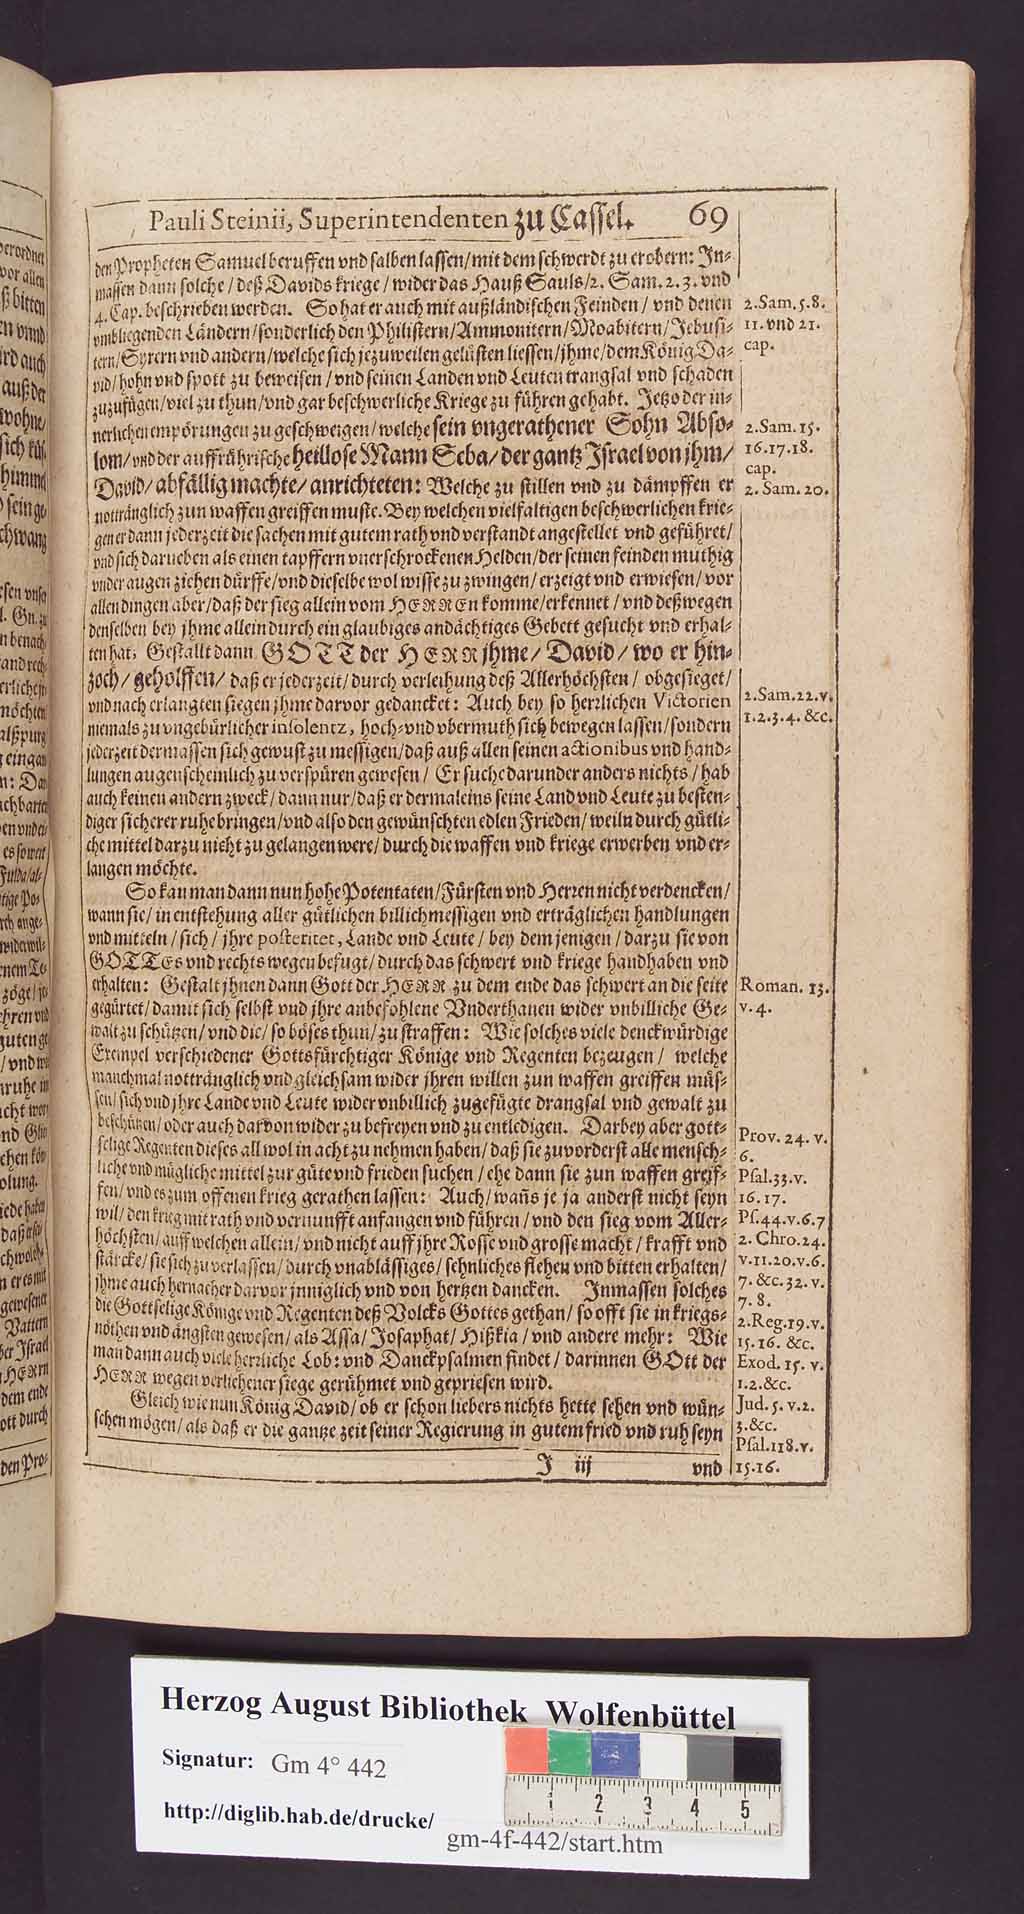 Pauli Steinii, Superintendenten zu Cassel. 69
den Propheten Samuel beruffen vnd salben lassen/ mit dem schwerdt zu erobern: In-
massen dann solche/ deß Davids kriege/ wider das Hauß Sauls/ 2. Sam. 2. 3. vnd
4. Cap. beschrieben werden. So hat er auch mit außländischen Feinden/ vnd denen
vmbliegenden Ländern/ sonderlich den Philistern/ Ammonitern/ Moabitern/ Jebusi-
tern/ Syrern vnd andern/ welche sich jezuweilen gelüsten liessen/ jhme/ dem König Da-
vid/ hohn vnd spott zu beweisen/ vnd seinen Landen vnd Leuten trangsal vnd schaden
zuzufügen/ viel zu thun/ vnd gar beschwerliche Kriege zu führen gehabt. Jetzo der in-
nerlichen empörungen zu geschweigen/ welche sein vngerathener Sohn Abso-
lom/ vnd der auffrührische heillose Mann Seba/ der gantz Israel von jhm/
David/ abfällig machte/ anrichteten: Welche zu stillen vnd zu dämpffen er
nottränglich zun waffen greiffen muste. Bey welchen vielfaltigen beschwerlichen krie-
gen er dann jederzeit die sachen mit gutem rath vnd verstandt angestellet vnd geführet/
vnd sich darneben als einen tapffern vnerschrockenen Helden/ der seinen feinden muthig
vnder augen ziehen dürffe/ vnd dieselbe wol wisse zu zwingen/ erzeigt vnd erwiesen/ vor
allen dingen aber/ daß der sieg allein vom HERREn komme/ erkennet/ vnd deßwegen
denselben bey jhme allein durch ein glaubiges andächtiges Gebett gesucht vnd erhal-
ten hat; Gestallt dann GOTT der HERR jhme/ David/ wo er hin-
zoch/ geholffen/ daß er jederzeit/ durch verleihung deß Allerhöchsten/ obgesieget/
vnd nach erlangten siegen jhme darvor gedancket: Auch bey so herrlichen Victorien
niemals zu vngebürlicher insolentz, hoch- vnd vbermuth sich bewegen lassen/ sondern
jederzeit dermassen sich gewust zu messigen/ daß auß allen seinen actionibus vnd hand-
lungen augenscheinlich zu verspüren gewesen/ Er suche darunder anders nichts/ hab
auch keinen andern zweck/ dann nur/ daß er dermaleins seine Land vnd Leute zu besten-
diger sicherer ruhe bringen/ vnd also den gewünschten edlen Frieden/ weiln durch gütli-
che mittel darzu nicht zu gelangen were/ durch die waffen vnd kriege erwerben vnd er-
langen möchte.
So kan man dann nun hohe Potentaten/ Fürsten vnd Herzen nicht verdencken/
wann sie/ in entstehung aller gütlichen billichmessigen vnd erträglichen handlungen
vnd mitteln/ sich/ jhre posteritet, Lande vnd Leute/ bey dem jenigen/ darzu sie von
GOTTEs vnd rechts wegen befugt/ durch das schwert vnd kriege handhaben vnd
erhalten: Gestalt jhnen dann Gott der HERR zu dem ende das schwert an die seite
gegürtet/ damit sich selbst vnd jhre anbefohlene Vnderthanen wider vnbilliche Ge-
walt zu schützen/ vnd die/ so böses thun/ zu straffen: Wie solches viele denckwürdige
Exempel verschiedener Gottsfürchtiger Könige vnd Regenten bezeugen/ welche
manchmal nottränglich vnd gleichsam wider jhren willen zun waffen greiffen müs-
sen/ sich vnd jhre Lande vnd Leute wider vnbillich zugefügte drangsal vnd gewalt zu
beschützen/ oder auch darvon wider zu befreyen vnd zu entledigen. Darbey aber gott-
selige Regenten dieses all wol in acht zu nehmen haben/ daß sie zuvorderst alle mensch-
liche vnd mügliche mittel zur güte vnd frieden suchen/ ehe dann sie zun waffen greif-
fen/ vnd es zum offenen krieg gerathen lassen: Auch/ wañs je ja anderst nicht seyn
wil/ den krieg mit rath vnd vernunfft anfangen vnd führen/ vnd den sieg vom Aller-
höchsten/ auff welchen allein/ vnd nicht auff jhre Rosse vnd grosse macht/ krafft vnd
stärcke/ sie sich zu verlassen/ durch vnablässiges/ sehnliches flehen vnd bitten erhalten/
jhme auch hernacher darvor jnniglich vnd von hertzen dancken. Inmassen solches
die Gottselige Könige vnd Regenten deß Volcks Gottes gethan/ so offt sie in kriegs-
nöthen vnd ängsten gewesen/ als Assa/ Josaphat/ Hißkia/ vnd andere mehr: Wie
man dann auch viele herrliche Lob- vnd Danckpsalmen findet/ darinnen GOtt der
HERR wegen verliehener siege gerühmet vnd gepriesen wird.
Gleich wie nun König David/ ob er schon liebers nichts hette sehen vnd wün-
schen mögen/ als daß er die gantze zeit seiner Regierung in gutem fried vnd ruh seyn
J iij vnd
2. Sam. 5. 8.
11. vnd 21.
cap.
2. Sam. 15.
16. 17. 18.
cap.
2. Sam. 20.
2. Sam. 22. v.
1. 2. 3. 4. &c.
Roman. 13.
v. 4.
Prov. 24. v.
6.
Psal. 33. v.
16. 17.
Ps. 44. v. 6. 7
2. Chro. 24.
v. 11. 20. v. 6.
7. &c. 32. v.
7. 8.
2. Reg. 19. v.
15. 16. &c.
Exod. 15. v.
1. 2. &c.
Jud. 5. v. 2.
3. &c.
Psal. 118. v.
15. 16.
Herzog August Bibliothek Wolfenbüttel
Signatur: Gm 4° 442
http://diglib.hab.de/drucke/
gm-4f-442/start.htm
1 2 3 4 5